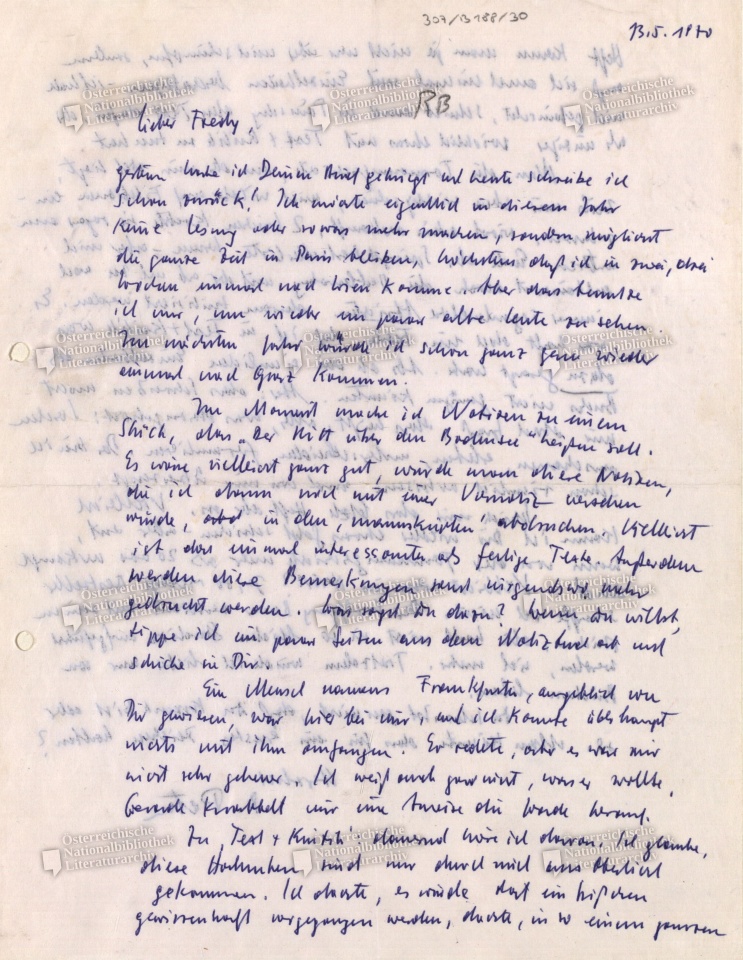 307/B188/30
13.5.1970
RB
Lieber Fredy,
gestern habe ich Deinen Brief gekriegt und heute schreibe ich
schon zurück! Ich möchte eigentlich in diesem Jahr
keine Lesung oder sowas mehr machen, sondern möglichst
die ganze Zeit in Paris bleiben, höchstens daß ich in zwei, drei
Wochen einmal nach Wien komme. Aber das benutze
ich nur, um wieder ein paar alte Leute zu sehen.
Im nächsten Jahr würde ich schon ganz gern wieder
einmal nach Graz kommen.
Im Moment mache ich Notizen zu einem
Stück, das "Der Ritt über den Bodensee" heißen soll.
Es wäre vielleicht ganz gut, würde man diese Notizen,
die ich dann noch mit einer Vornotiz versehen
würde, in den "manuskripten" abdrucken. Vielleicht
ist das einmal interessanter als fertige Texte. Außerdem
werden diese Bemerkungen sonst nirgendwo mehr
gedruckt werden. Was sagst Du dazu? Wenn Du willst,
tippe ich ein paar Seiten aus dem Notizbuch ab und
schicke sie Dir.
Ein Mensch namens Frankfurter, angeblich von
Dir gewiesen, war hier bei mir, und ich konnte überhaupt
nichts mit ihm anfangen. Er redete, aber es war mir
nicht sehr geheuer. Ich weiß auch gar nicht, was er wollte.
Gerade krabbelt mir eine Ameise die Wade herauf.
Zu "Text + Kritik": dauernd höre ich davon. Ich glaube,
diese sind nur durch mich ans
gekommen. Ich dachte, es würde dort ein bißchen
gewissenhaft vorgegangen werden, dachte, in so einem ganzen
Österreichische
Nationalbibliothek
Literaturarchiv
Österreichische
Nationalbibliothek
Literaturarchiv
Österreichische
Nationalbibliothek
Literaturarchiv
Österreichische
Nationalbibliothek
Literaturarchiv
Österreichische
Nationalbibliothek
Literaturarchiv
Österreichische
Nationalbibliothek
Literaturarchiv
Österreichische
Nationalbibliothek
Literaturarchiv
Österreichische
Nationalbibliothek
Literaturarchiv
Österreichische
Nationalbibliothek
Literaturarchiv
Österreichische
Nationalbibliothek
Literaturarchiv
Österreichische
Nationalbibliothek
Literaturarchiv
Österreichische
Nationalbibliothek
Literaturarchiv